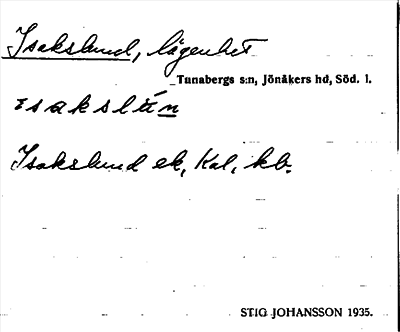 Isakslund, lägenhet
Tunabergs s:n, Jönåkers hd, Söd. l.
ɪsakslún
Isakslund ek, Kal, kb.
STIG JOHANSSON 1935.